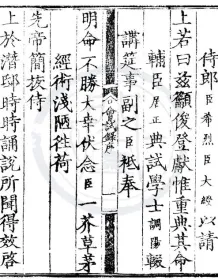 侍郎臣希烈臣大綬以請
上若曰茲籲俊登獻惟重典其命
輔臣居正典試學士調陽輟
會試錄序
講筵事副之臣祗奉
明命不勝大幸伏念臣一芥草茅
經術淺陋徃荷
先帝簡拔侍
上於潛邸時時誦說所聞得效啓